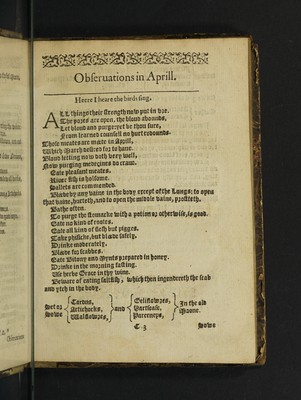 Obseruations in Aprill.
Heere I heare the birds sing.
ALL things their strength now put in vre.
The pores are open, the blood abounds,
Let blood and purge: yet be thou sure,
From learned counsell no hurt redounds.
Those meates are made in Aprill,
Which March desires for to haue.
Blood letting now doth very well,
Now purging medecines do craue.
Eate pleasant meates.
Riuer fish is holsome.
Sallets are commanded.
Bleede by any vaine in the body except of the Lungs; to open
that vaine, hurteth, and to open the middle vaine, profiteth.
Bathe often.
To purge the stomacke with a potion; otherwise, is good.
Eate no kind of rootes.
Eate all kind of flesh but pigges.
Take phisicke, but bleede safely.
Drinke moderately.
Bleede for scabbes.
Eate Bitony and Mynts prepared in honey.
Drinke in the morning fasting.
Vse herbe Grace in thy wine.
Beware of eating saltfish, which then ingendreth the scab
and ytch in the body.
Set or Sowe { Cardus, Artichocks, Wallflowres, } and { Geliflowres, Hartsease, Parceneps, } In the old Moone.
C 3
Sowe